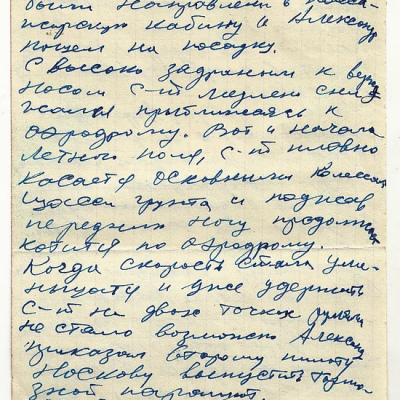 были направлены в пасса-
жирскую кабину и Александр
пошел на посадку.
С высоко задраным к верху
носом с-т медленно сни-
жался приближаясь к
аэродрому. Вот и начало
летного поля, с-т плавно
касается основными колесами
грунта и поджав
переднюю ногу продолжает
катится по аэродрому.
Когда скорость стала уме-
ньшатся и уже удержать
с-т на двух точках рулями
не стало возможно Александр
приказал второму пилоту
Носкову выпустить тормо-
зной парашют.